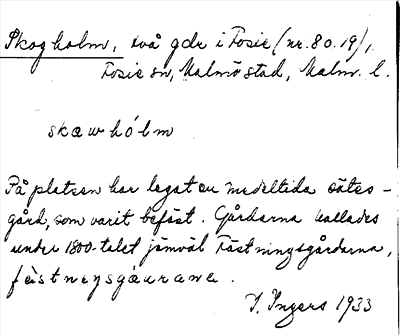 Skogholm, två gdr i Fosie (nr. 80.19),
Fosie sn, Malmö stad, Malm. l.
skæwhólm
På platsen har legat en medeltida sätes-
gård, som varit befäst. Gårdarna kallades
under 1800-talet jämväl Fästningsgårdarna,
fæstneysgæurane.
I. Ingers 1933